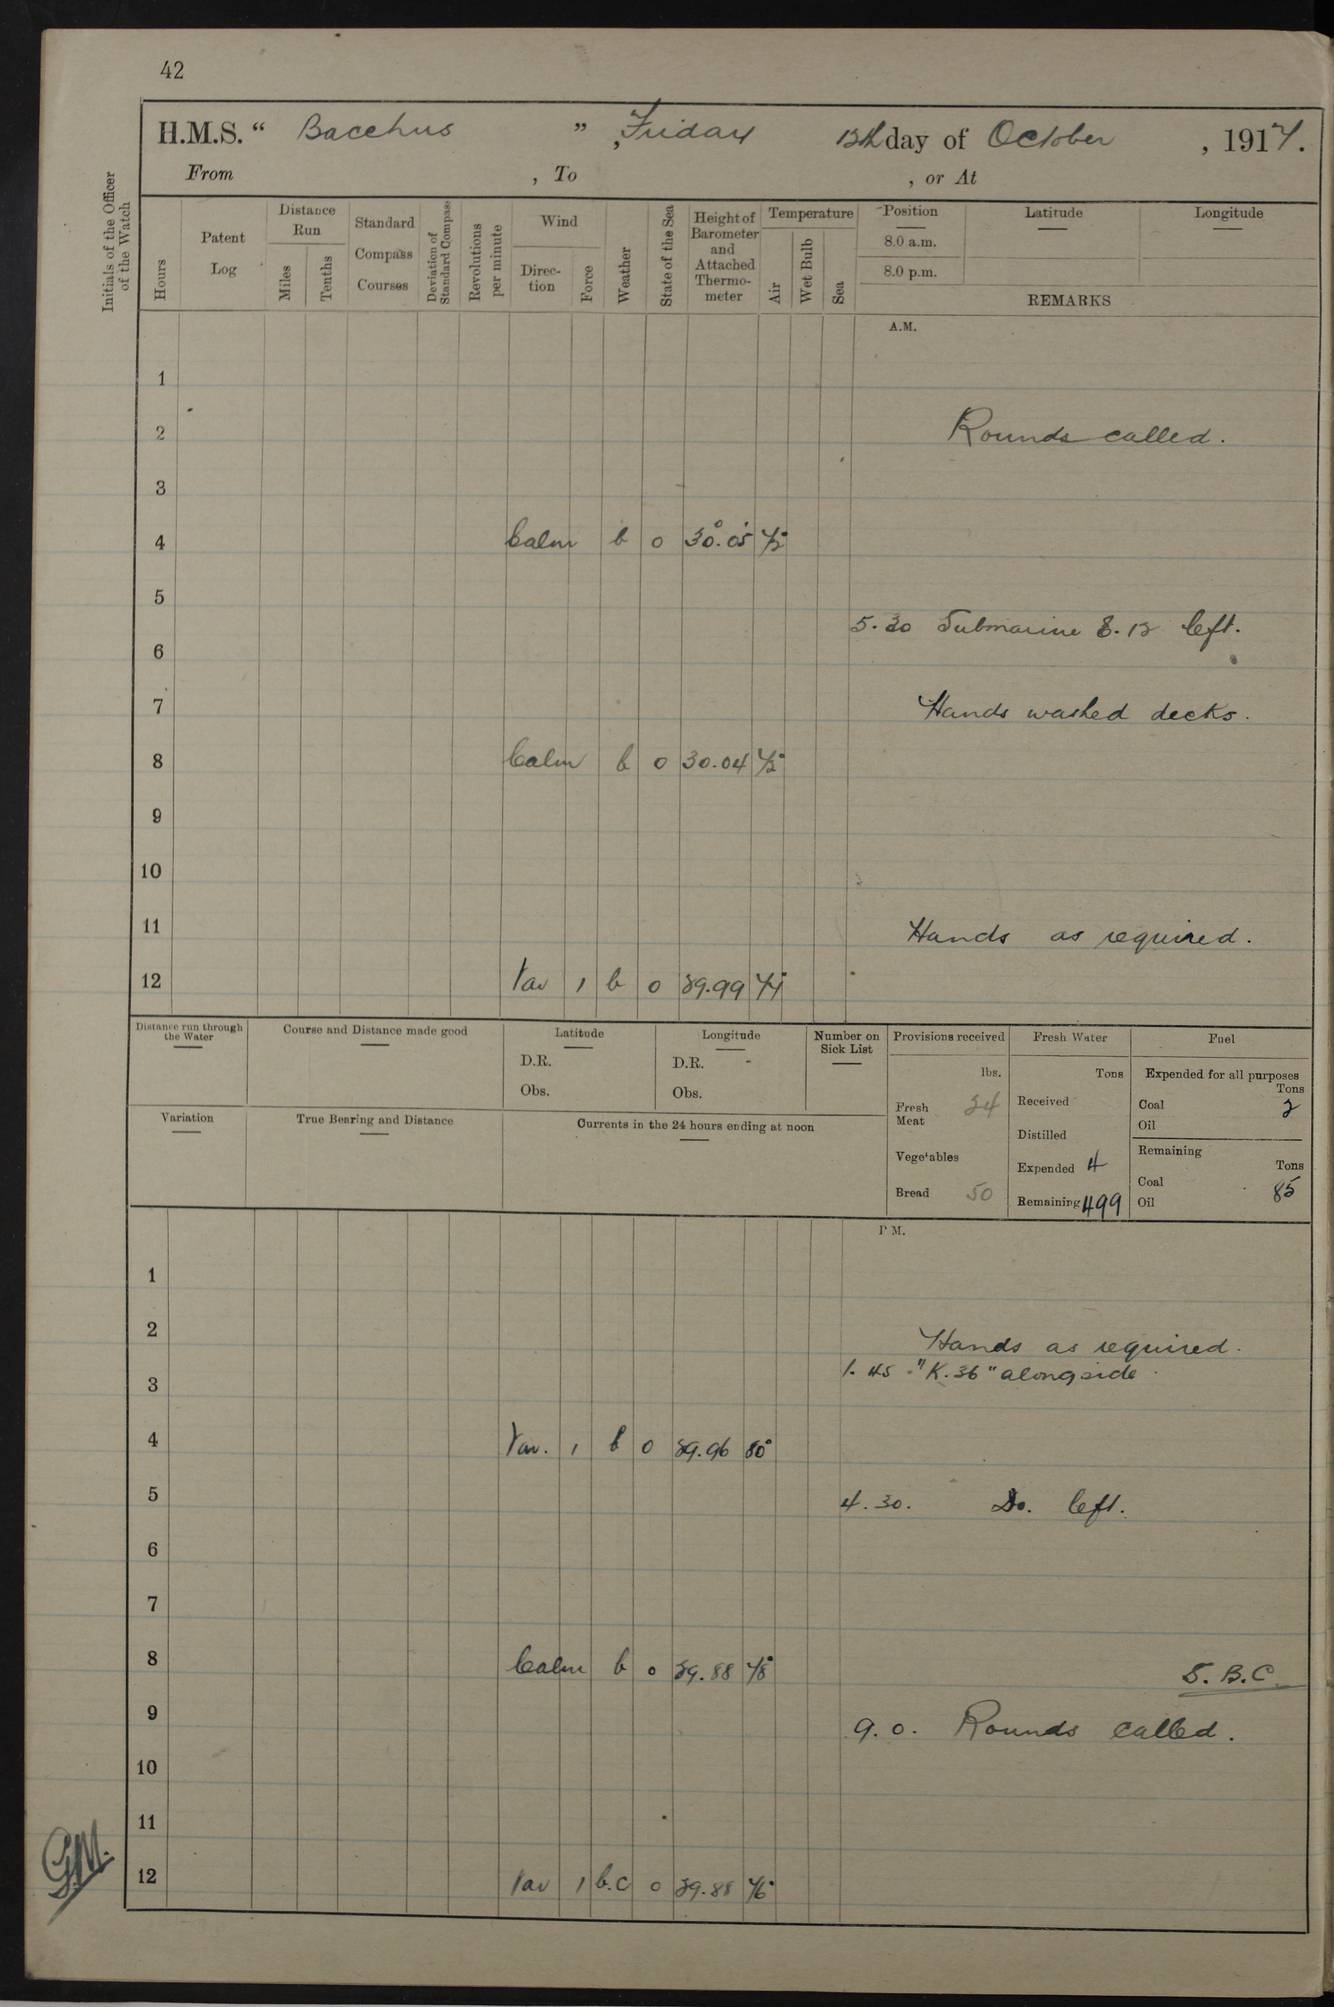 42
H.M.S. “ Bacchus ” , Friday 12th day of October , 1917.
From , To , or At
Initials of the Officer of the Watch
Hours
Patent Log
Distance Run
Miles
Tenths
Standard Compass Courses
Deviation of Standard Compass
Revolutions per minute
Wind
Direction
Force
Weather
State of the Sea
Height of Barometer and Attached Thermometer
Temperature
Air
Wet Bulb
Sea
Position Latitude Longitude
8.0 a.m.
8.0 p.m.
REMARKS
A.M.
1
2 Rounds called.
3
4 Calm b 0 30.05 72°
5
5.30 Submarine E.12 left.
6
7 Hands washed decks.
8 Calm b 0 30.04 72°
9
10
11 Hands as required.
12 Var 1 b 0 29.99 77°
Distance run through the Water
Course and Distance made good
Latitude
D.R.
Obs.
Longitude
D.R. -
Obs.
Number on Sick List
Provisions received
lbs.
Fresh Meat 24
Vegetables
Bread 50
Fresh Water
Tons
Received
Distilled
Expended 4
Remaining 499
Fuel
Expended for all purposes
Tons
Coal 2
Oil
Remaining
Tons
Coal 85
Oil
Variation
True Bearing and Distance
Currents in the 24 hours ending at noon
P.M.
1
2 Hands as required.
1.45 "K.36" alongside.
3
4 Var. 1 b 0 29.96 80°
5 4.30. Do. left.
6
7
8 Calm b 0 29.88 78°
S.B.C.
9 9.0. Rounds called.
10
11
12 Var 1 b.c 0 29.88 76°
G.M.